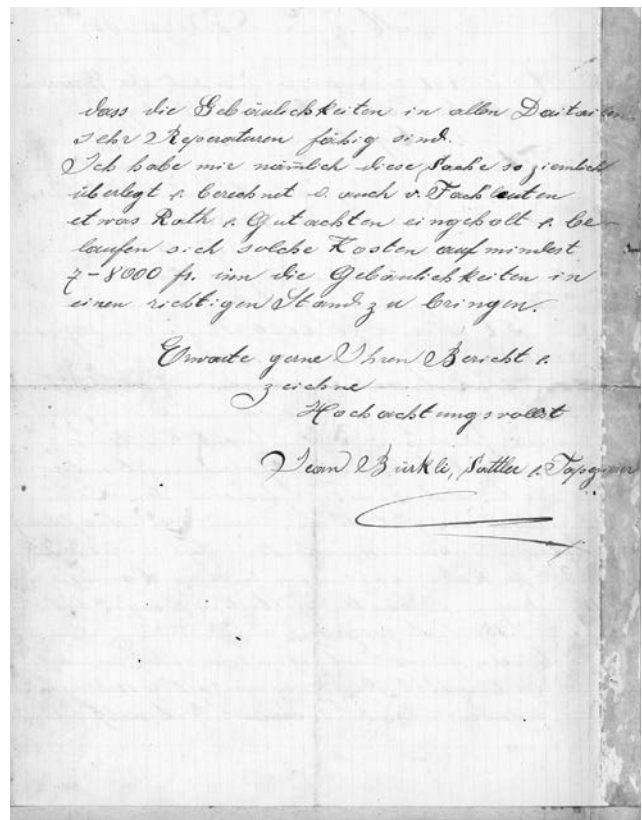 dass die Gebäulichkeiten in allen Daitailen
sehr Reperaturen fähig sind.
Ich habe mir nämlich diese Sache so ziemlich
überlegt & berechnet u. auch v. Fachleuten
etwas Rath & Gutachten eingeholt & be-
laufen sich solche Kosten auf mindest
7-8000 fr. um die Gebäulichkeiten in
einen richtigen Stand zu bringen.
Erwarte gerne Ihren Bericht &
zeichne
Hochachtungsvollst
Jean Bürkli, Sattler & Tapezierer